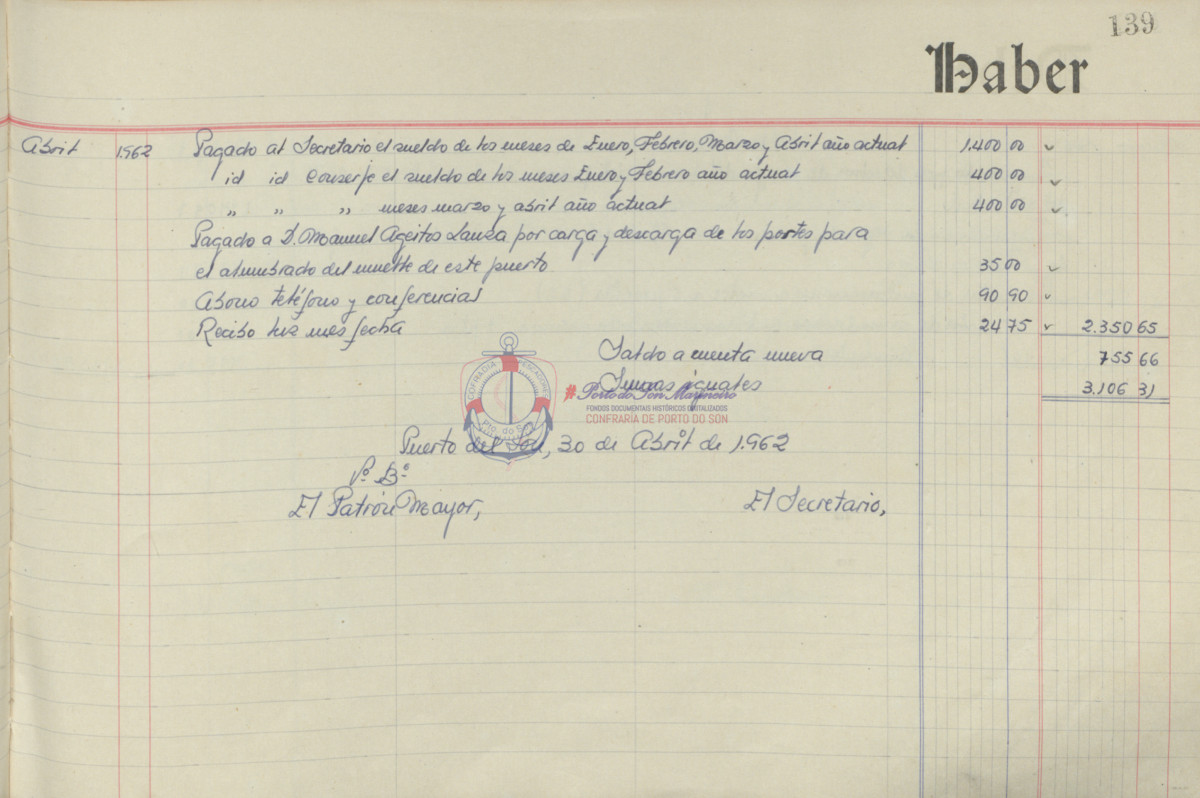 139
Haber
Abril 1962 Pagado al Secretario el sueldo de los meses de Enero, Febrero, Marzo y Abril año actual 1.400 00
id id Conserje el sueldo de los meses Enero y Febrero año actual 400 00
„ „ „ meses marzo y abril año actual 400 00
Pagado a D. Manuel Ageitos Lauza por carga y descarga de los postes para
el alumbrado del muelle de este puerto 35 00
Abono teléfono y conferencias 90 90
Recibo luz mes fecha 24 75 2.350 65
Saldo a cuenta nueva 755 66
Sumas iguales 3.106 31
COFRADIA PESCADORES
Pto. do Son
#Porto do Son Mariñeiro
FONDOS DOCUMENTAIS HISTÓRICOS DIXITALIZADOS
CONFRARÍA DE PORTO DO SON
Puerto del Son, 30 de Abril de 1.962
Vº Bº
El Patrón Mayor, El Secretario,